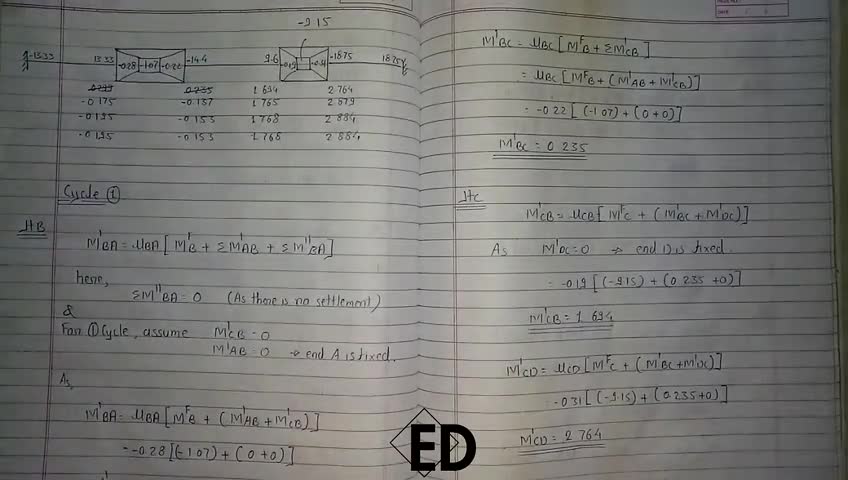 -9.15
-13.33 13.33 -0.28 -1.07 -0.22 -14.4 9.6 -0.19 -0.31 -18.75 18.75
0.299 0.235 1.694 2.764
-0.175 -0.137 1.765 2.879
-0.195 -0.153 1.768 2.884
-0.195 -0.153 1.768 2.884
Cycle ①
Jt B
M'BA = μBA [ MFB + ΣM'AB + ΣM''BA ]
here,
ΣM''BA = 0 (As there is no settlement)
&
For ① Cycle, assume M'CB = 0
M'AB = 0 → end A is fixed.
As,
M'BA = μBA [ MFB + (M'AB + M'CB) ]
= -0.28 [(-1.07) + (0+0)]
M'BC = μBC [ MFB + ΣM'CB ]
= μBC [ MFB + (M'AB + M'CB) ]
= -0.22 [ (-1.07) + (0+0) ]
M'BC = 0.235
Jt C
M'CB = μCB [ MFC + (M'BC + M'DC) ]
As M'DC = 0 → end D is fixed.
= -0.19 [ (-9.15) + (0.235 + 0) ]
M'CB = 1.694
M'CD = μCD [ MFC + (M'BC + M'DC) ]
-0.31 [ (-9.15) + (0.235 + 0) ]
M'CD = 2.764
ED